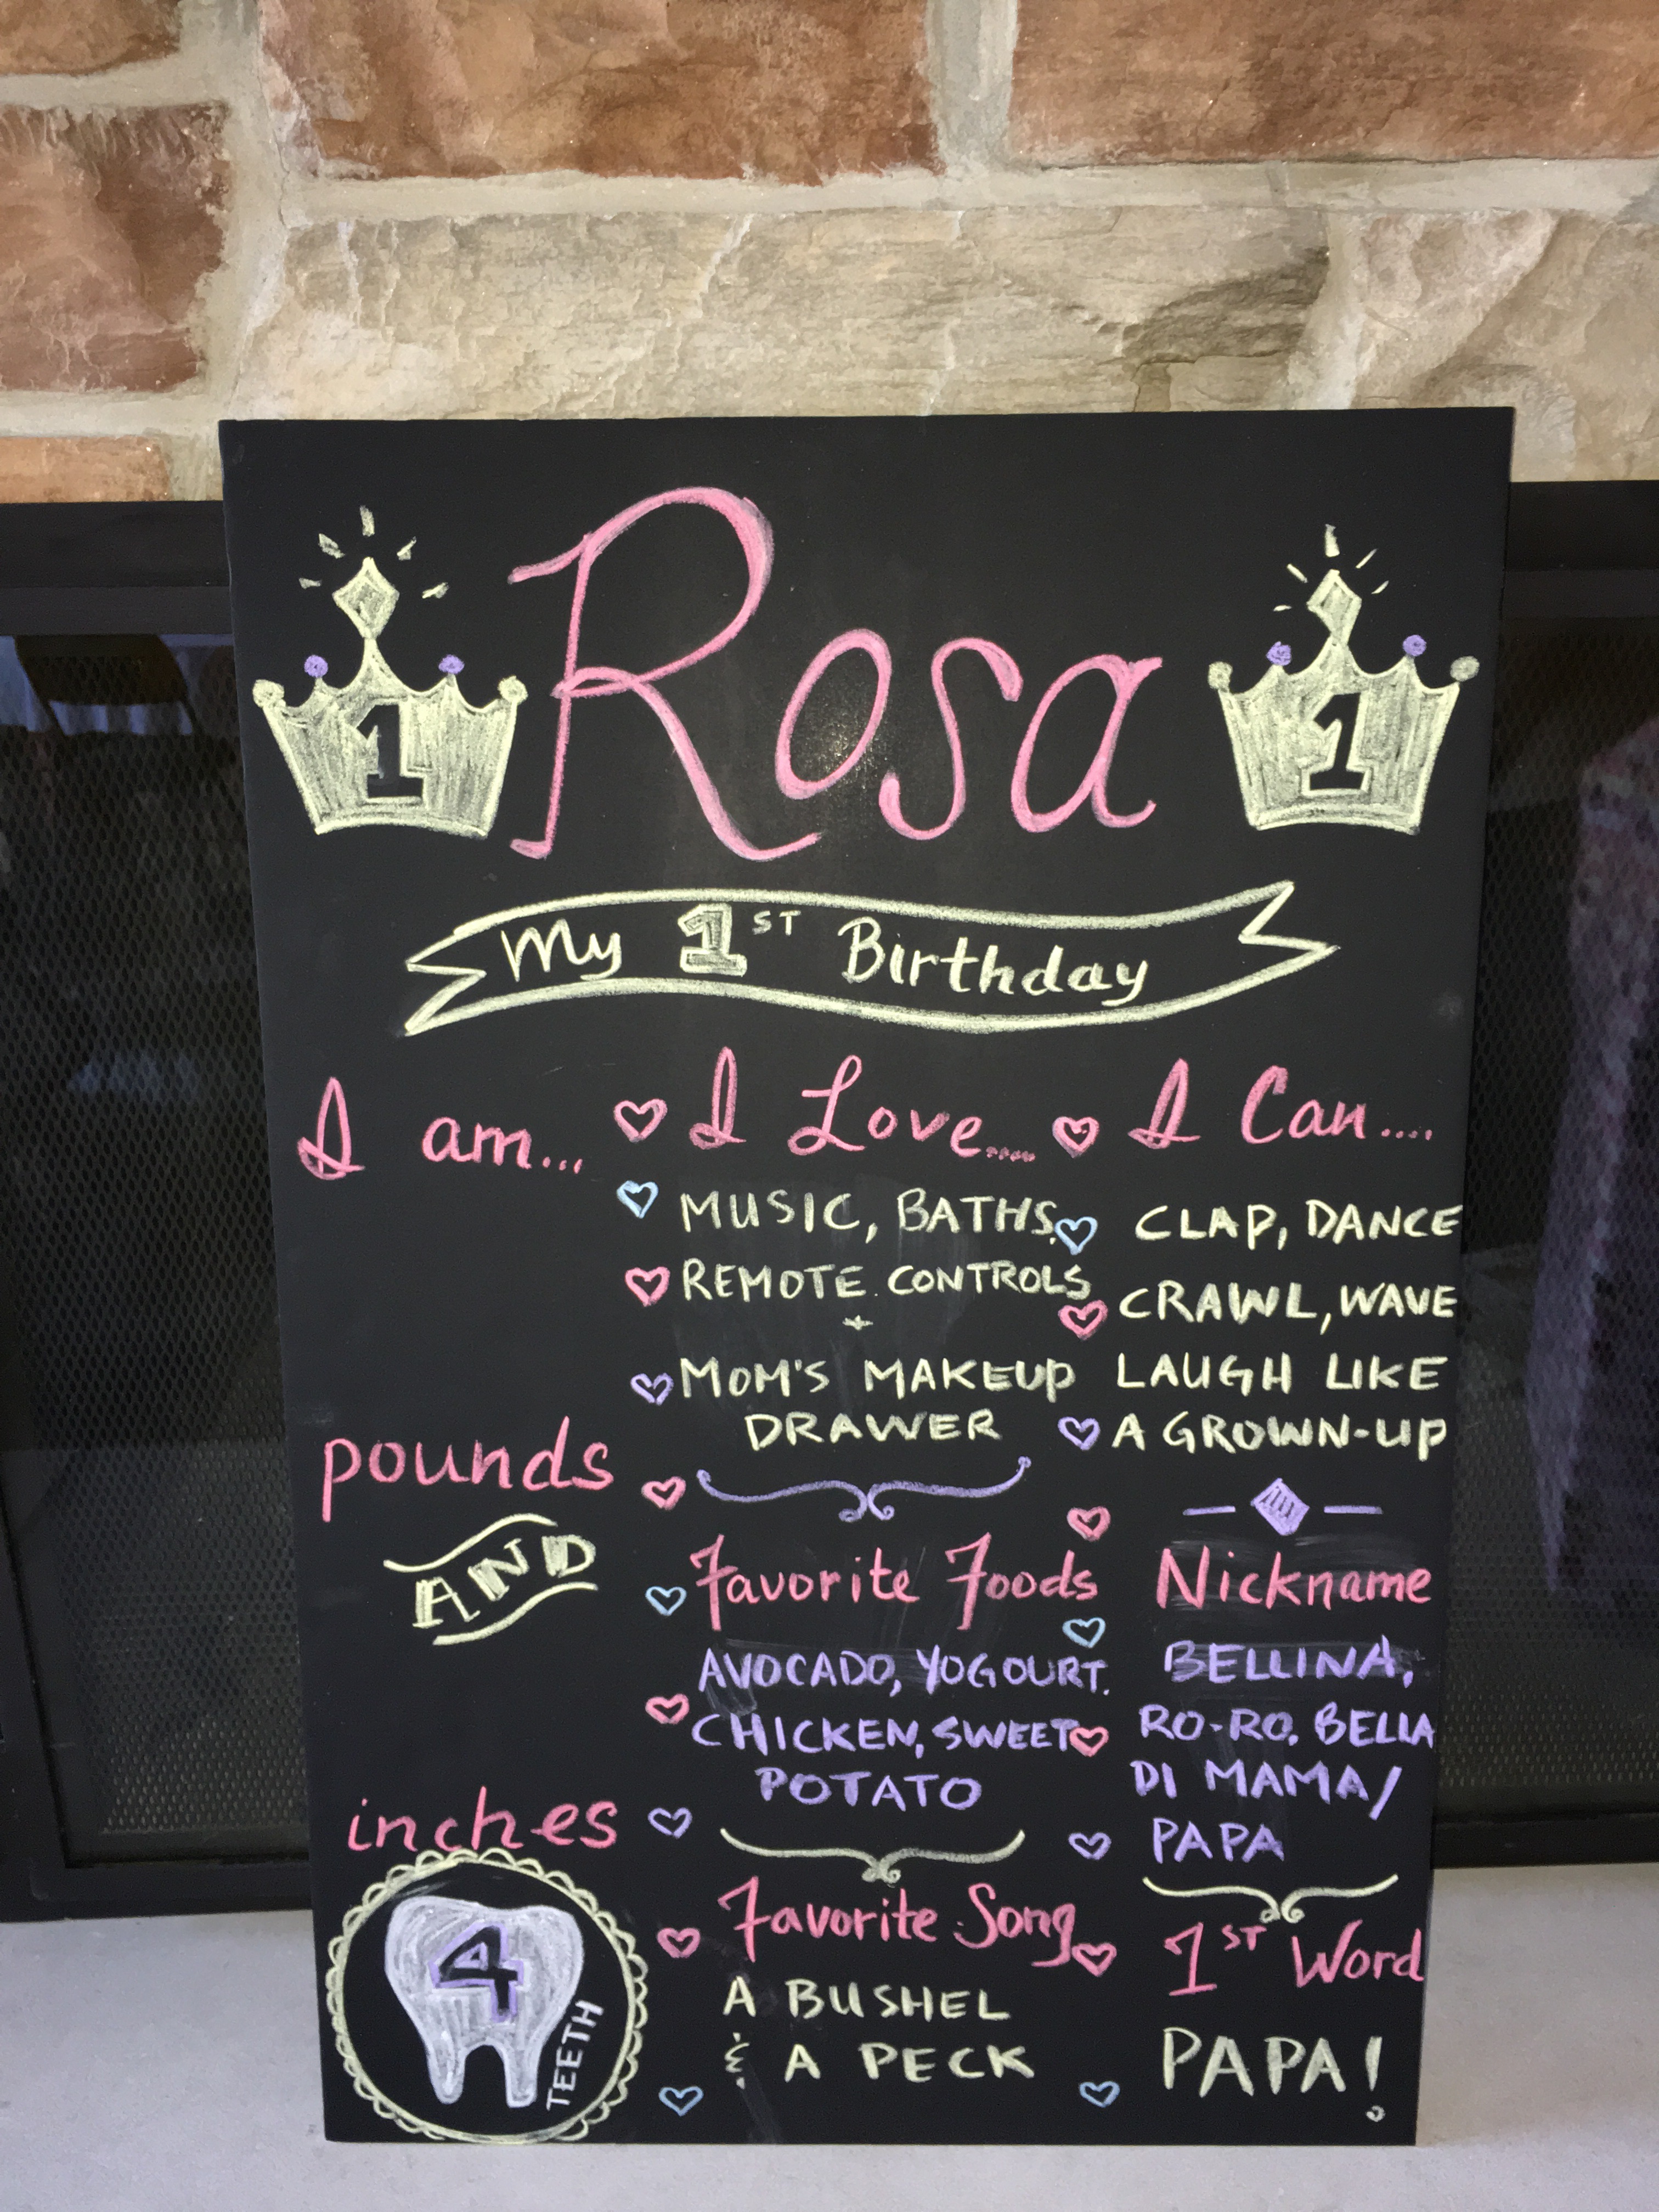 1
Rosa
1
My 1ST Birthday
I am...
pounds
AND
inches
4
TEETH
I Love.....
MUSIC, BATHS,
REMOTE CONTROLS
+
MOM'S MAKEUP
DRAWER
Favorite Foods
AVOCADO, YOGOURT,
CHICKEN, SWEET
POTATO
Favorite Song
A BUSHEL
& A PECK
I Can....
CLAP, DANCE
CRAWL, WAVE
LAUGH LIKE
A GROWN-UP
Nickname
BELLINA,
RO-RO, BELLA
DI MAMA/
PAPA
1ST Word
PAPA!